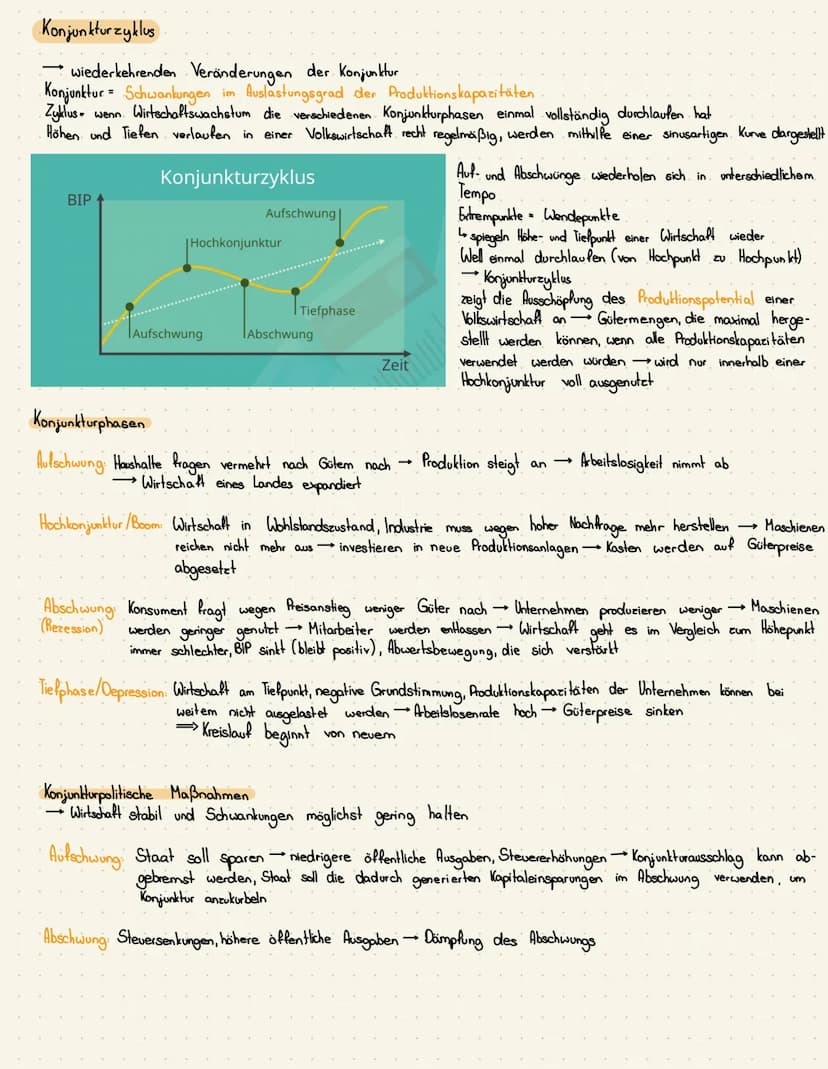 Konjunkturzyklus
→ wiederkehrenden Veränderungen der Konjunktur
Konjunktur = Schwankungen im Auslastungsgrad der Produktionskapazitäten
Zyklus = wenn Wirtschaftswachstum die verschiedenen Konjunkturphasen einmal vollständig durchlaufen hat
Höhen und Tiefen verlaufen in einer Volkswirtschaft recht regelmäßig, werden mithilfe einer sinusartigen Kurve dargestellt
Konjunkturzyklus
BIP
Aufschwung
Hochkonjunktur
Tiefphase
Aufschwung
Abschwung
Zeit
Auf- und Abschwünge wiederholen sich in unterschiedlichem
Tempo
Extrempunkte = Wendepunkte
↳ spiegeln Höhe- und Tiefpunkt einer Wirtschaft wieder
Well einmal durchlaufen (von Hochpunkt zu Hochpunkt)
→ Konjunkturzyklus
zeigt die Ausschöpfung des Produktionspotential einer
Volkswirtschaft an → Gütermengen, die maximal herge-
stellt werden können, wenn alle Produktionskapazitäten
verwendet werden würden → wird nur innerhalb einer
Hochkonjunktur voll ausgenutzt
Konjunkturphasen
Aufschwung: Haushalte fragen vermehrt nach Gütern nach → Produktion steigt an → Arbeitslosigkeit nimmt ab
→ Wirtschaft eines Landes expandiert
Hochkonjunktur/Boom: Wirtschaft in Wohlstandszustand, Industrie muss wegen hoher Nachfrage mehr herstellen → Maschienen
reichen nicht mehr aus → investieren in neue Produktionsanlagen → Kosten werden auf Güterpreise
abgesetzt
Abschwung: Konsument fragt wegen Preisanstieg weniger Güter nach → Unternehmen produzieren weniger → Maschienen
(Rezession) werden geringer genutzt → Mitarbeiter werden entlassen → Wirtschaft geht es im Vergleich zum Höhepunkt
immer schlechter, BIP sinkt (bleibt positiv), Abwertsbewegung, die sich verstärkt
Tiefphase/Depression: Wirtschaft am Tiefpunkt, negative Grundstimmung, Produktionskapazitäten der Unternehmen können bei
weitem nicht ausgelastet werden → Arbeitslosenrate hoch → Güterpreise sinken
⟹ Kreislauf beginnt von neuem
Konjunkturpolitische Maßnahmen
→ Wirtschaft stabil und Schwankungen möglichst gering halten
Aufschwung: Staat soll sparen → niedrigere öffentliche Ausgaben, Steuererhöhungen → Konjunkturausschlag kann ab-
gebremst werden, Staat soll die dadurch generierten Kapitaleinsparungen im Abschwung verwenden, um
Konjunktur anzukurbeln
Abschwung: Steuersenkungen, höhere öffentliche Ausgaben → Dämpfung des Abschwungs